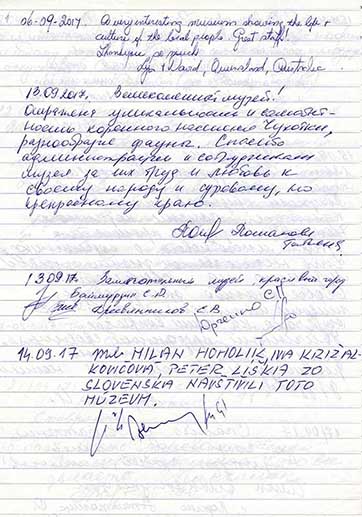 06-09-2017. A very interesting museum showing the life +
culture of the local people. Great staff!
Thankyou so much
Lyn + David, Queensland, Australia
13.09.2017. Великолепный музей!
Отражена уникальность и самобыт-
ность коренного населения Чукотки,
разнообразие фауны. Спасибо
администрации и сотрудникам
музея за их труд и любовь к
своему народу и суровому, но
прекрасному краю.
Татьяна
13.09.17. Замечательный музей, красивый город
С.В.
Юрченко С.
14.09.17 my MILAN HOHOLIK, IVA KRIŽAL-
KOVICOVÁ, PETER LIŠKA ZO
SLOVENSKA NAVŠTÍVILI TOTO
MÚZEUM.